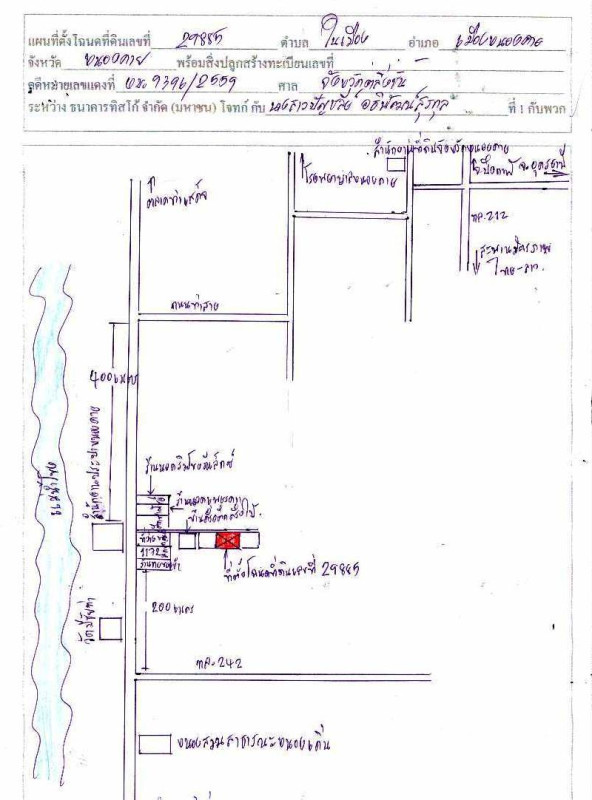 แผนที่ตั้งโฉนดที่ดินเลขที่ 29885 ตำบล ในเมือง อำเภอ เมืองหนองคาย
จังหวัด หนองคาย พร้อมสิ่งปลูกสร้างทะเบียนเลขที่
คดีหมายเลขแดงที่ ผบ. 9396/2559 ศาล จังหวัดตลิ่งชัน
ระหว่าง ธนาคารทิสโก้ จำกัด (มหาชน) โจทก์ กับ นางสาว ที่ 1 กับพวก
สำนักงานที่ดินจังหวัดหนองคาย
โรงพยาบาลหนองคาย
จ.อุดรธานี
ตลาดท่าเสด็จ
ทล.212
สะพานมิตรภาพ
ไทย-ลาว
ถนนท่าสาย
400 เมตร
สำนักงานประปาหนองคาย
แม่น้ำโขง
1172
ที่ตั้งโฉนดที่ดินเลขที่ 29885
200 เมตร
วัดมีชัยท่า
ทล.242
หนองสวนสาธารณะหนองถิ่น